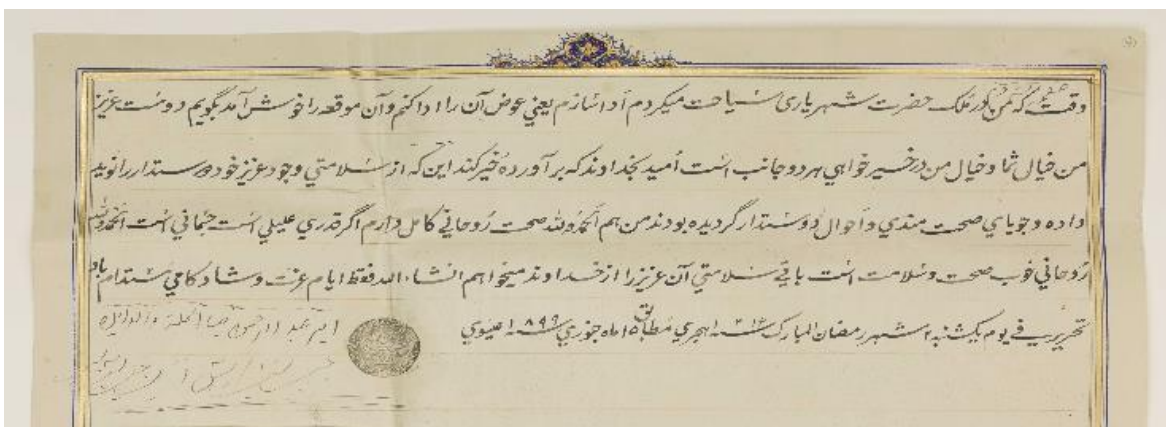 وقتی که من در ملک حضرت شهریاری سیاحت میکردم ادا سازم یعنی عوض آن را ادا کنم و آن موقعه را خوش آمد بگویم دوست عزیز
من خیال شما و خیال من در خیر خواهی هر دو جانب است امید بخداوند که برآورده خیر کند این که از سلامتی وجود عزیز خود دوستدار را نوید
داده و جویای صحت مندی و احوال دوستدار گردیده بودند من هم الحمدلله صحت روحانی کامل دارم اگر قدری علیلی است جسمانی است الحمدلله
روحانی خوب صحت و سلامت است باقی سلامتی آن عزیز را از خداوند میخواهم انشاءالله فقط ایام عزت و شادکامی مستدام باد
تحریر فی یوم یکشنبه شهر رمضان المبارک سنه ۱۳۱۶ هجری مطابق ۱۵ ماه جنوری سنه ۱۸۹۹ عیسوی